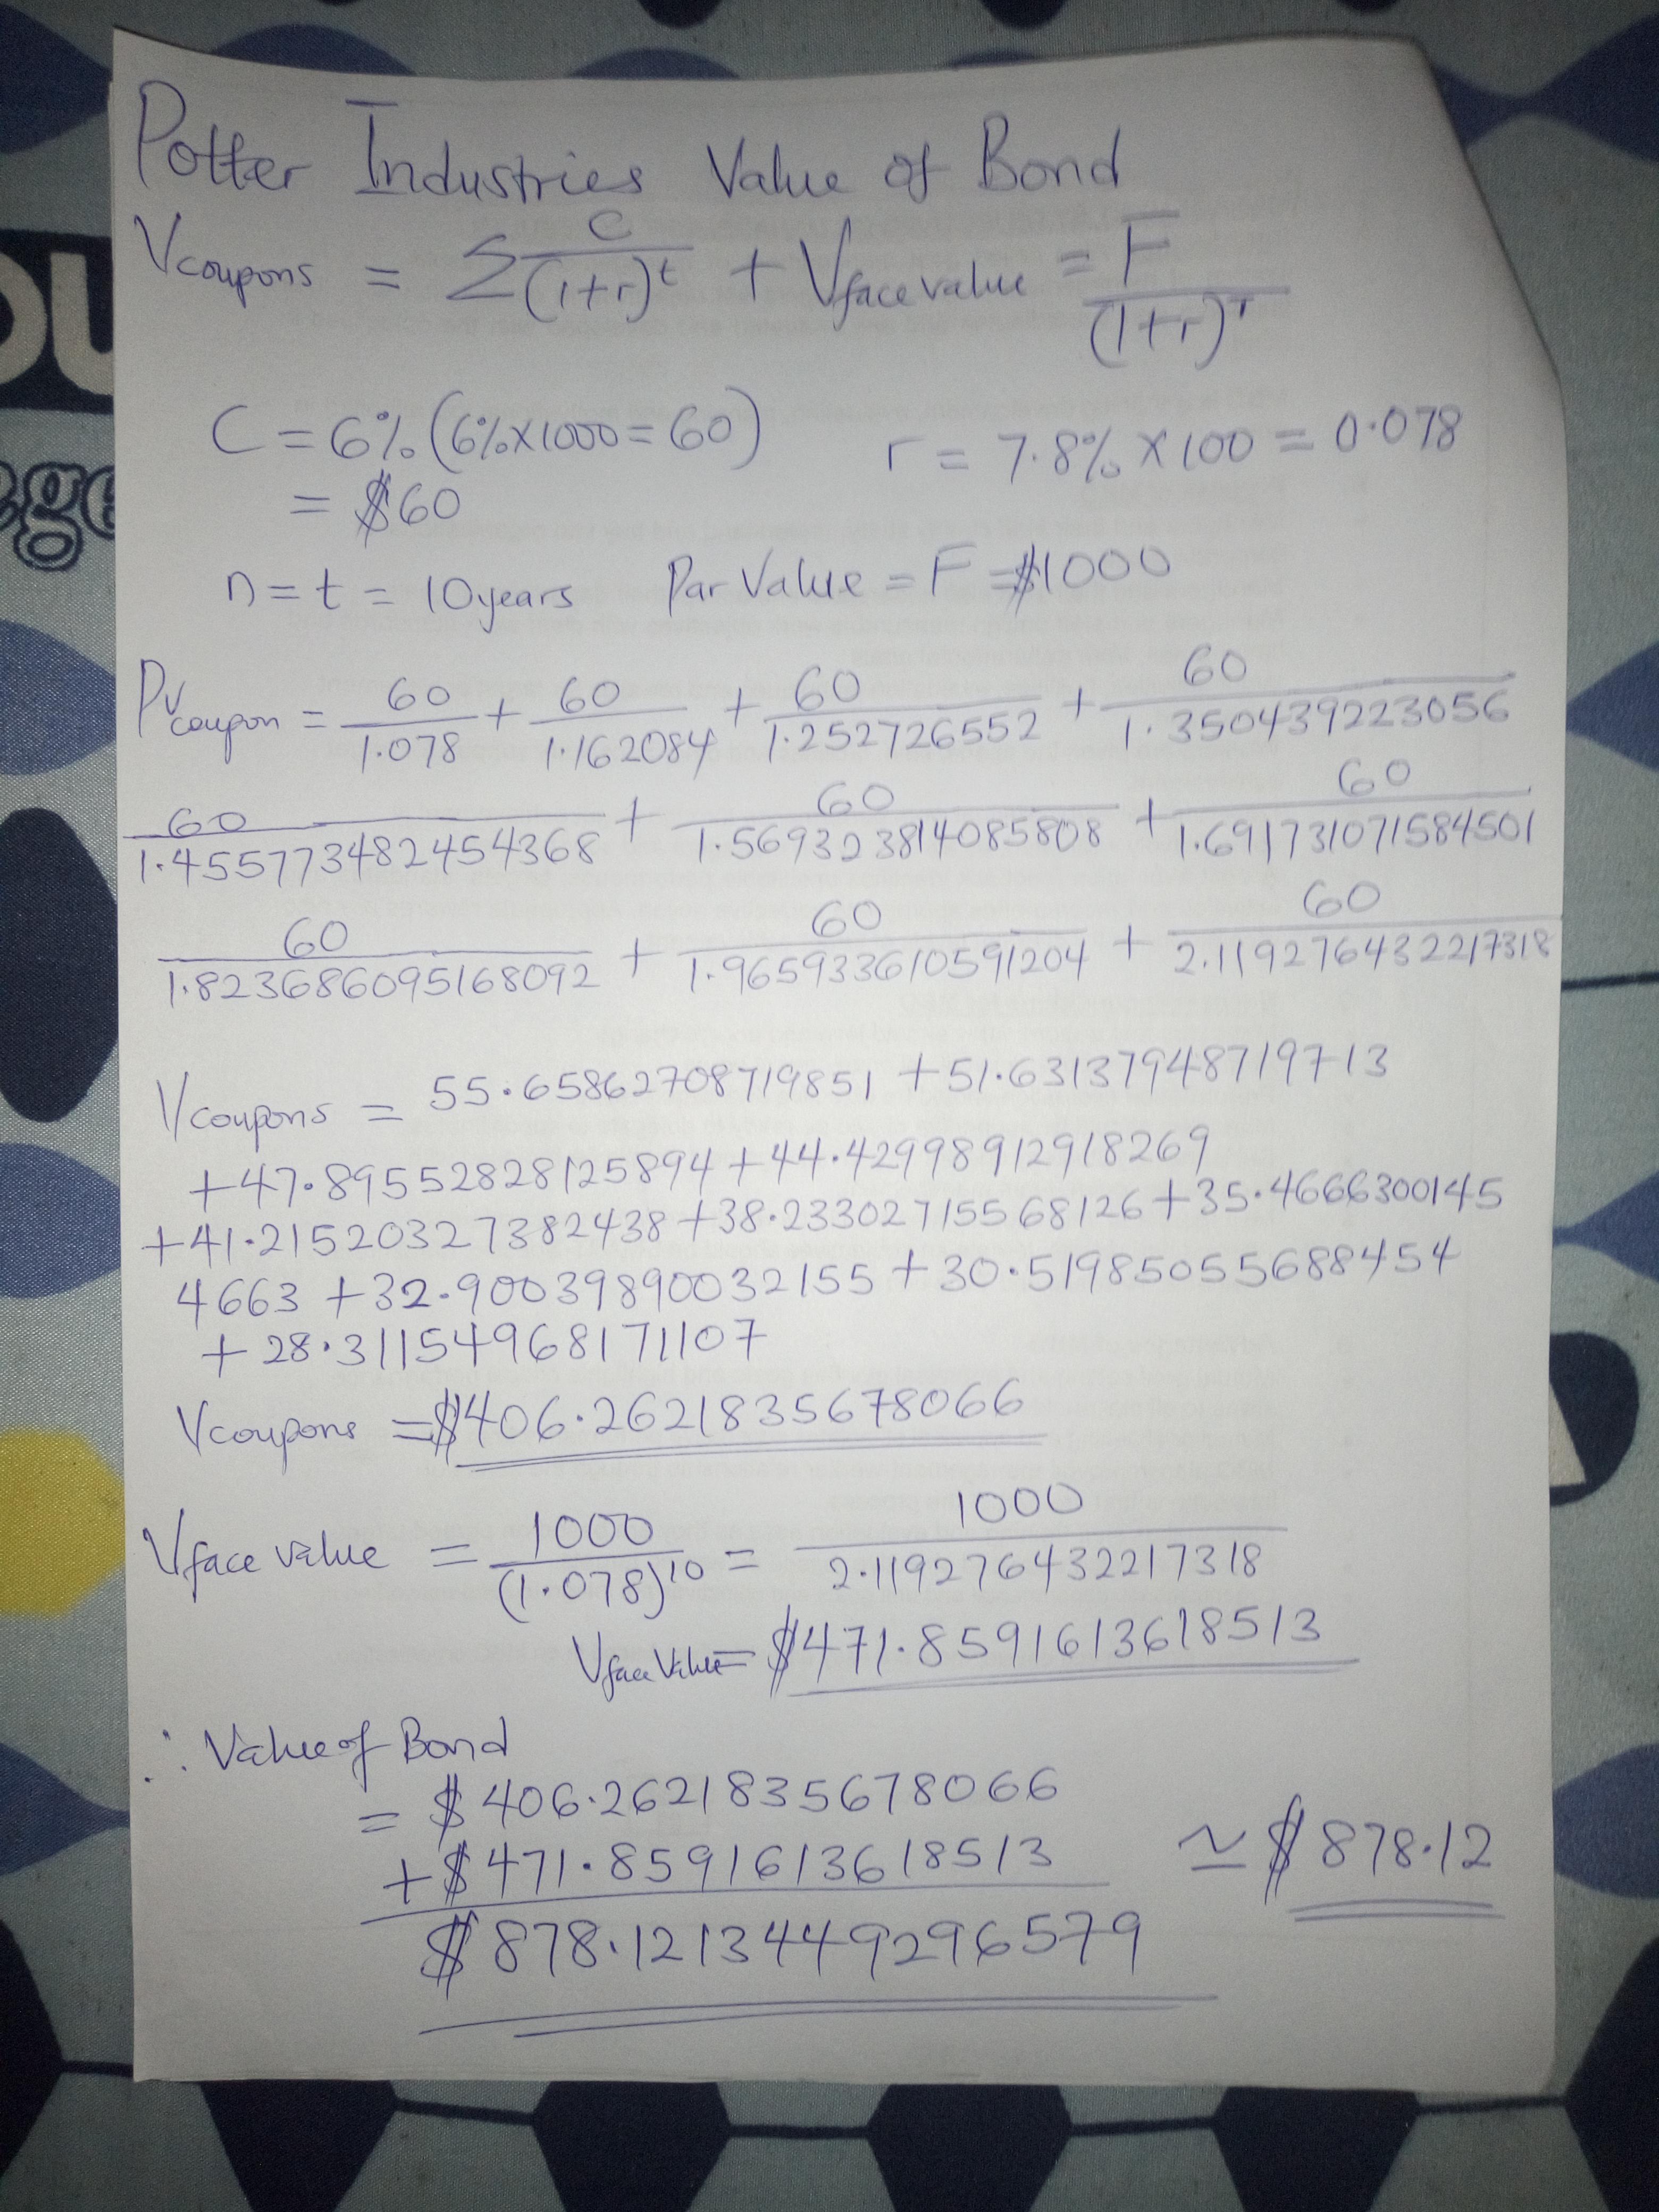 Potter Industries Value of Bond
Vcoupons = Σ C/(1+r)^t + Vface value = F/(1+r)^T
C = 6% (6% x 1000 = 60)   r = 7.8% x 100 = 0.078
= $60
n = t = 10 years   Par Value = F = $1000
PVcoupon = 60/1.078 + 60/1.162084 + 60/1.252726552 + 60/1.350439223056
60/1.455773482454368 + 60/1.569323814085808 + 60/1.691731071584501
60/1.823686095168092 + 60/1.965933610591204 + 60/2.119276432217318
Vcoupons = 55.65862708719851 + 51.63137948719713
+ 47.89552828125894 + 44.42998912918269
+ 41.21520327382438 + 38.23302715568126 + 35.4666300145
4663 + 32.90039890032155 + 30.51985055688454
+ 28.31154968171107
Vcoupons = $406.2621835678066
Vface value = 1000/(1.078)^10 = 1000/2.119276432217318
Vface Value = $471.8591613618513
∴ Value of Bond
= $406.2621835678066
+ $471.8591613618513 ≃ $878.12
$878.1213449296579
OU
age